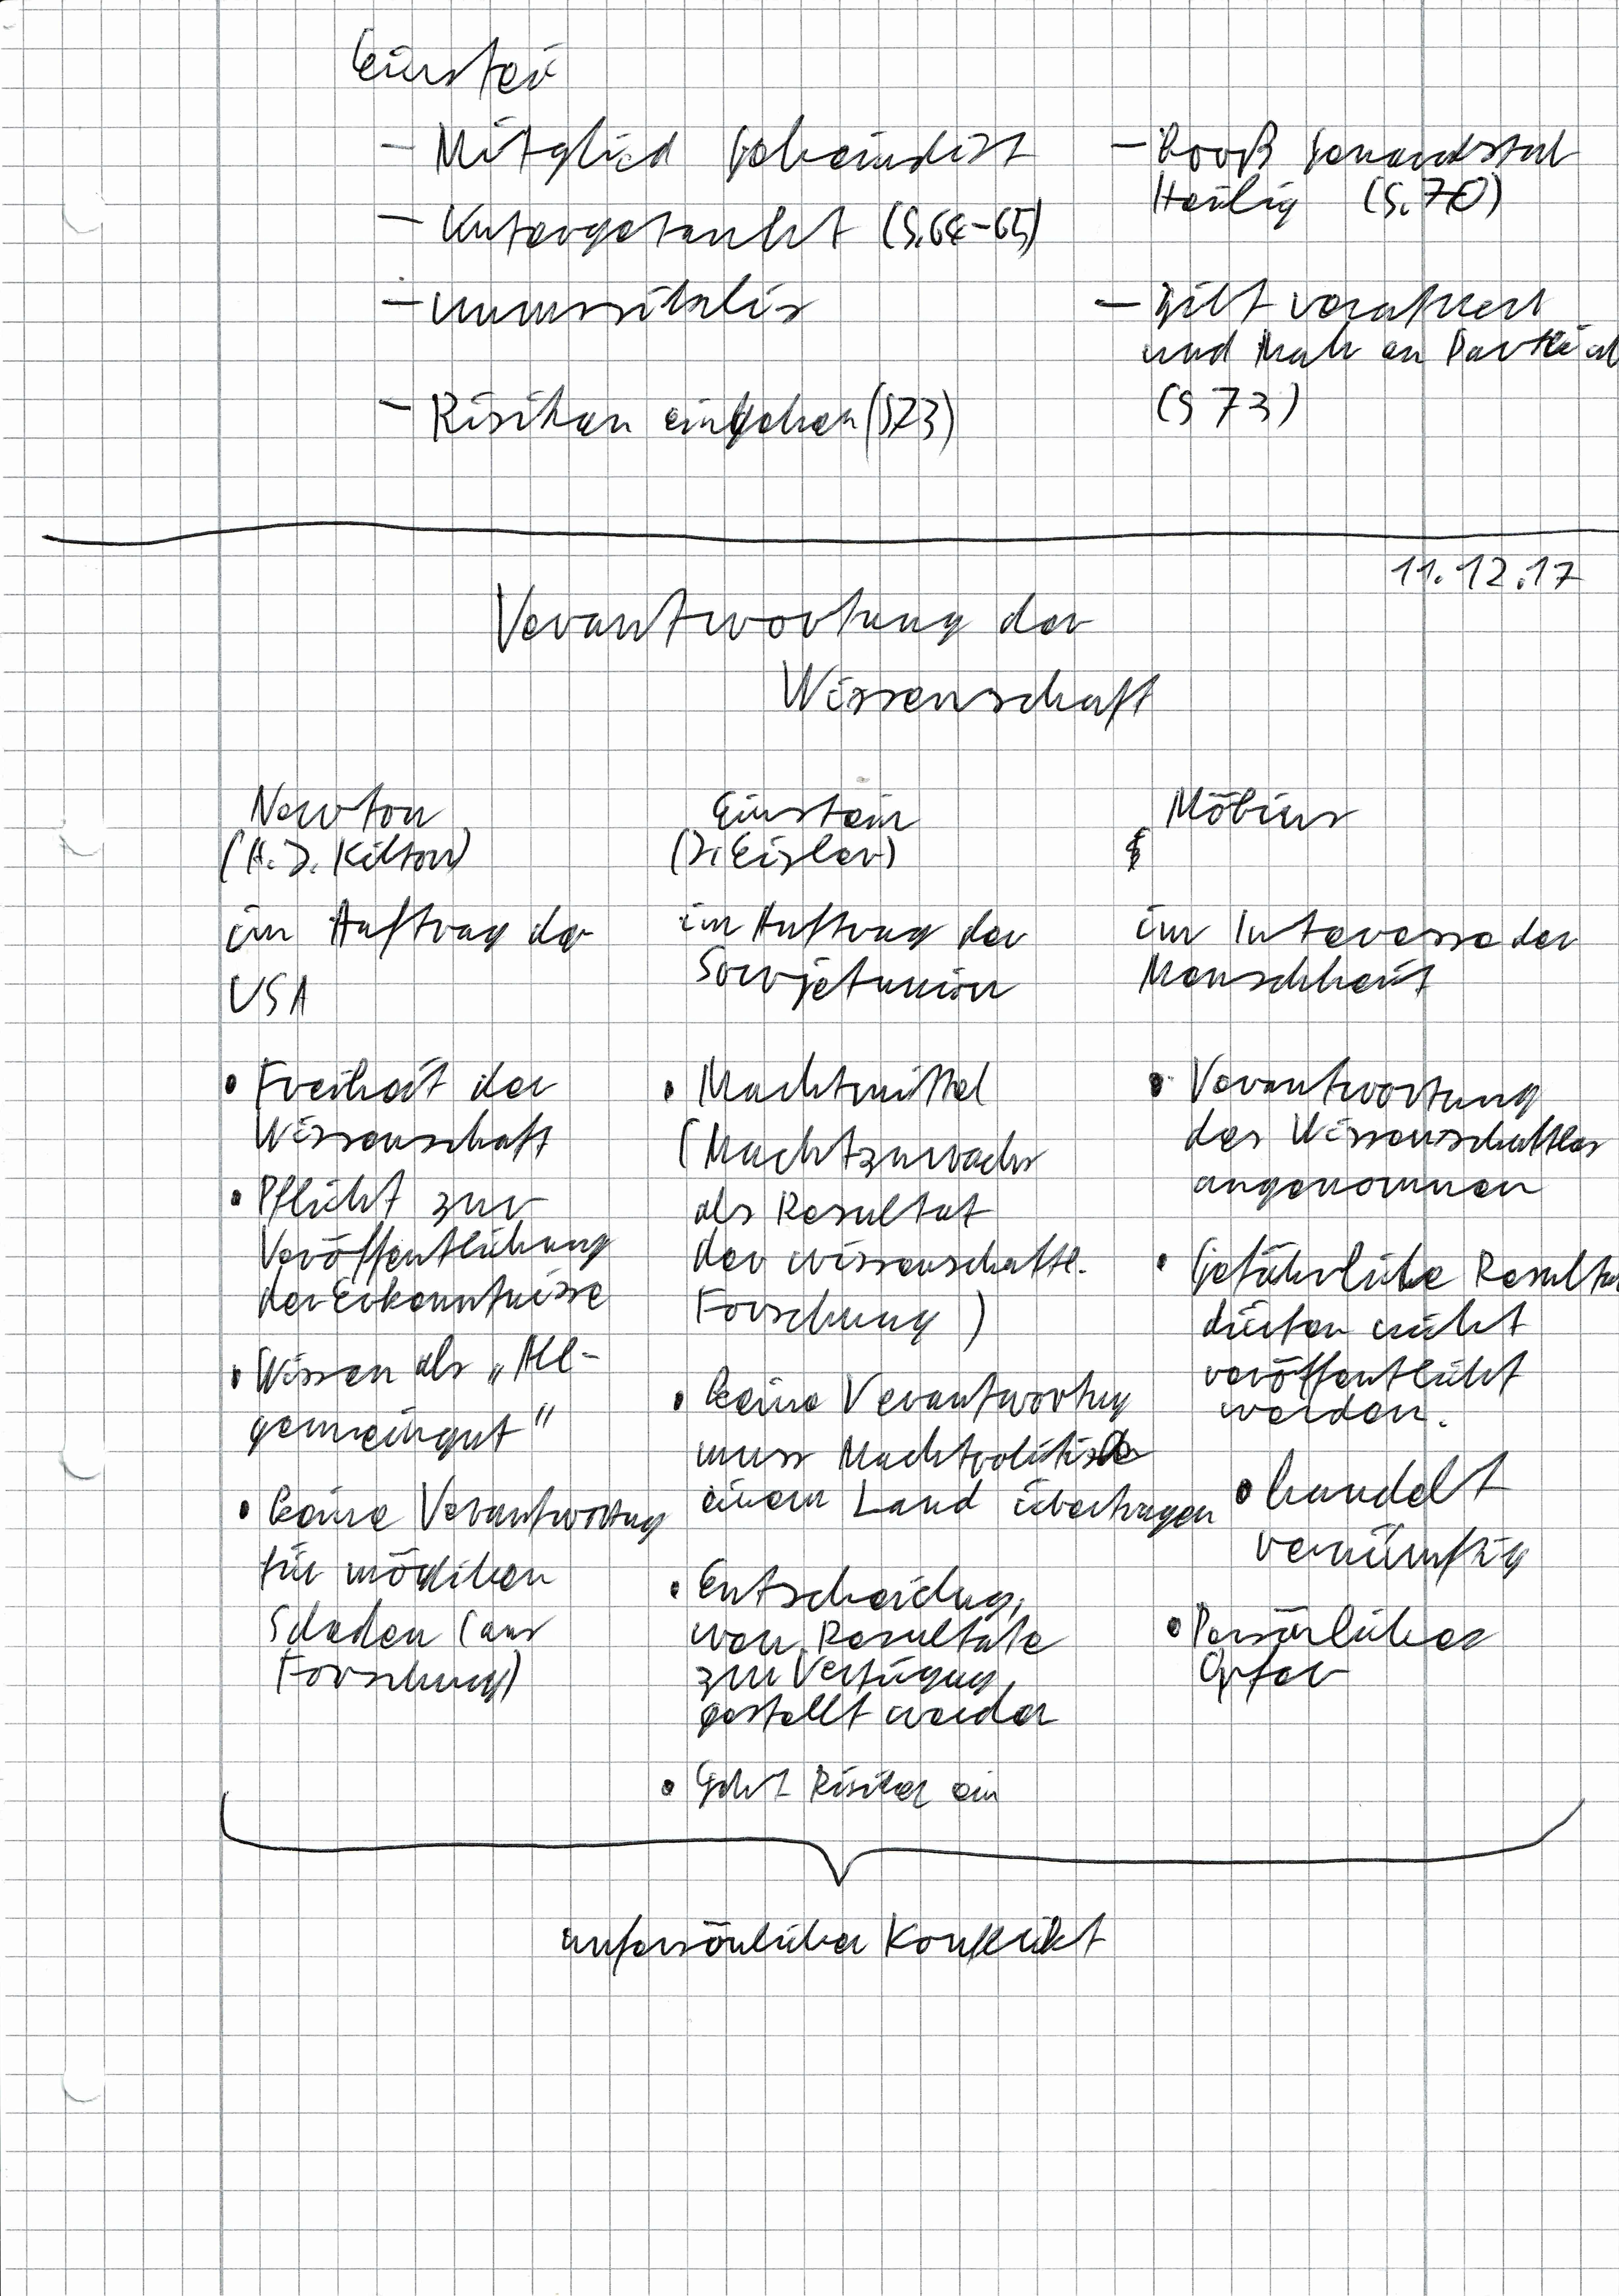 Einstei
– Mitglied Geheimdist
– Untergetaucht (S.64-65)
– unmusikalis
– Risiken eingehen (S73)
– Heilig (S.70)
– gilt
und an
(S 73)
11.12.17
Verantwortung der
Wissenschaft
Newton
(H. J. Kilton)
im Auftrag der
USA
• Freiheit der
Wissenschaft
• Pflicht zur
Veröffentlichung
der Erkenntnisse
• Wissen als „All-
gemeingut"
• keine Verantwortung
für möglichen
Schaden (aus
Forschung)
Einstein
(J. Eisler)
im Auftrag der
Sowjetunion
• Machtmittel
(Machtzuwachs
als Resultat
der wissenschaftl.
Forschung)
• keine Verantwortug
muss Machtpolitisch
einem Land übertragen
• Entscheidug,
wem Resultate
zur Verfügug
gestellt werden
• Geht Risiken ein
Möbius
im Interesse der
Menschheit
• Verantwortung
des Wissenschaftlers
angenommen
• Gefährliche Resulta
dürfen nicht
veröffentlicht
werden.
• handelt
vernünftig
• Persönliches
Opfer
unpersönlicher Konflikt